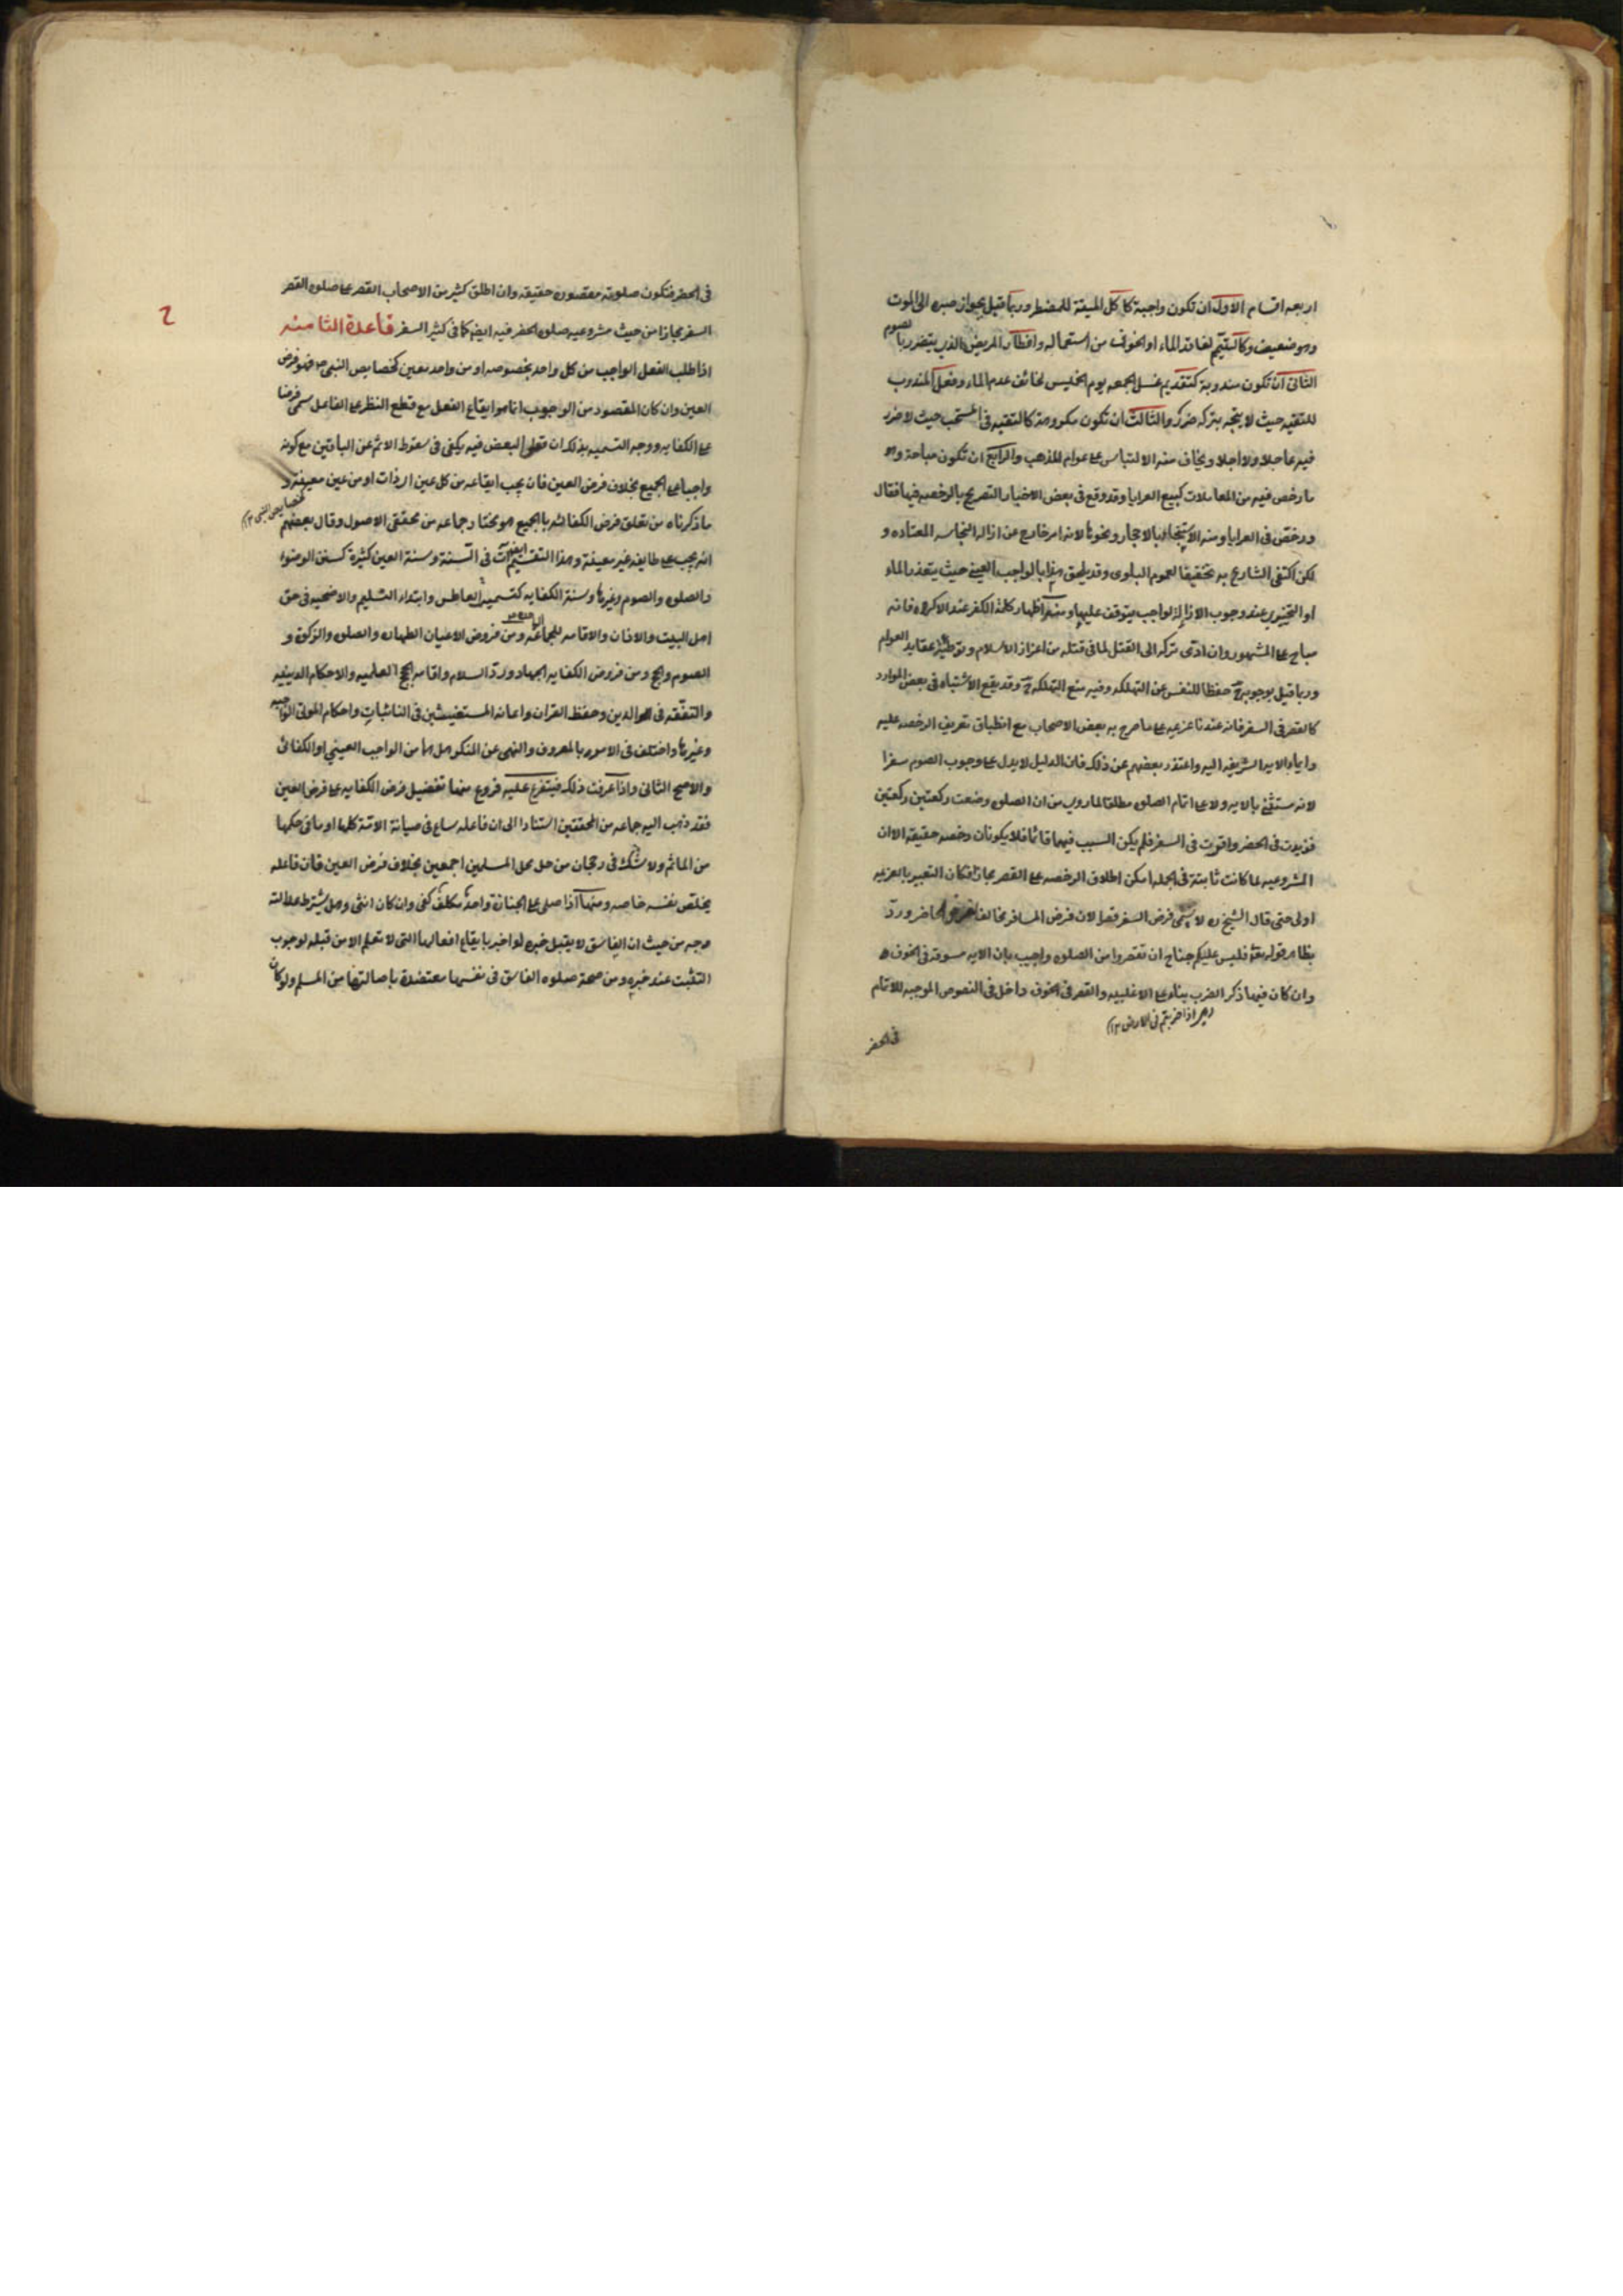 اربعه اقسام الاول ان تكون واجبة كاكل الميتة للمضطر وربما قيل بجواز صبره الى الموت
وهو ضعيف وكالتيمم لفاقد الماء او الخوف من استعماله وافطار المريض الذي يتضرر بالصوم
الثانى ان تكون مندوبة كتقديم غسل الجمعه يوم الخميس لخائف عدم الماء وفعل المندوب
للتقيه حيث لا يتجه بتركه ضرر والثالث ان تكون مكروهة كالتقيه فى المستحب حيث لا ضرر
فيه عاجلا ولا اجلا ويخاف منه الالتباس على عوام المذهب والرابع ان تكون مباحة وهو
ما رخص فيه من المعاملات كبيع العرايا وقد وقع فى بعض الاخبار التصريح بالرخصه فيها فقال
ورخص فى العرايا ومنه الاستنجاء بالاحجار ونحوها لانه امر خارج عن ازاله النجاسه المعتاده و
لكن اكتفى الشارع به تخفيفا لعموم البلوى وقد يلحق هذا بالواجب العينى حيث يتعذر الماء
او التخييرى عند وجوب الازالة لواجب يتوقف عليها ومنه اظهار كلمة الكفر عند الاكراه فانه
مباح على المشهور وان ادى تركه الى القتل لما فى قتله من اعزاز الاسلام وتوطئة عقايد العوام
وربما قيل بوجوبه ح حفظا للنفس عن التهلكه وفيه منع التهلكه ح وقد يقع الاشتباه فى بعض الموارد
كالقصر فى السفر فانه عندنا عزيمه على ما صرح به بعض الاصحاب مع انطباق تعريف الرخصه عليه
وايماء الايه الشريفه اليه واعتذر بعضهم عن ذلك فان الدليل لا يدل على وجوب الصوم سفرا
لانه مستثنى بالايه ولا على اتمام الصلوه مطلقا لما روى من ان الصلوه وضعت ركعتين ركعتين
فزيدت فى الحضر واقرت فى السفر فلم يكن السبب فيهما قائما فلا يكونان رخصه حقيقه الا ان
المشروعيه لما كانت ثابتة فى الجمله امكن اطلاق الرخصه على القصر مجازا فكان التعبير بالعزيمه
اولى حتى قال الشيخ ره لا يسمى فرض السفر قصرا لان فرض المسافر مخالف لفرض الحاضر ورد
بظاهر قوله تعالى فليس عليكم جناح ان تقصروا من الصلوه واجيب بان الايه مسوقة فى الخوف
وان كان فيها ذكر الضرب بناء على الاغلبيه والقصر فى الخوف داخل فى النصوص الموجبه للاتمام
اذا ضربتم فى الارض ١٢
فى الحضر
فى الحضر فتكون صلوته مقصوره حقيقه وان اطلق كثير من الاصحاب القصر على صلوه القصر
السفر مجازا من حيث مشروعيه صلوه الحضر فيه ايضا كما فى كثير السفر قاعدة الثامنه
اذا طلب الفعل الواجب من كل واحد بخصوصه او من واحد معين كخصايص النبى ص فهو فرض
العين وان كان المقصود من الوجوب انما هو ايقاع الفعل مع قطع النظر على الفاعل سمى فرضا
على الكفايه ووجه التسميه بذلك ان فعل البعض فيه يكفى فى سقوط الاثم عن الباقين مع كونه
واجبا على الجميع بخلاف فرض العين فان يجب ايقاعه من كل عين اى ذات او من عين معينة و
كخصايص النبى ١٢
ما ذكرناه من تعلق فرض الكفائه بالجميع هو مختار جماعه من محققى الاصول وقال بعضهم
انه يجب على طايفه غير معينة وهذا التقسيم آت ايضا فى السنة وسنة العين كثيرة كسنن الوضوء
والصلوه والصوم وغيرها وسنة الكفايه كتسميت العاطس وابتداء التسليم والاضحيه فى حق
اهل البيت والاذان والاقامه للجماعه ومن فروض الاعيان الطهاره والصلوه والزكوة و
الصوم والحج ومن فروض الكفايه الجهاد ورد السلام واقامه الحجج العلميه والاحكام الدينيه
والتفقه فى الدين وحفظ القران واعانه المستغيثين فى النائبات واحكام الموتى الواجبه
وغيرها واختلف فى الامر بالمعروف والنهى عن المنكر هل هما من الواجب العينى او الكفائى
والاصح الثانى واذا عرفت ذلك فيتفرع عليه فروع منها تفضيل فرض الكفايه على فرض العين
فقد ذهب اليه جماعه من المحققين استنادا الى ان فاعله ساع فى صيانة الامة كلها او ما فى حكمها
من الماثم ولا شك فى رجحان من حل محل المسلمين اجمعين بخلاف فرض العين فان فاعله
يخلص نفسه خاصه ومنها اذا صلى على الجنازة واحد مكلف كفى وان كان انثى وهل يشترط عدالته
وجه من حيث ان الفاسق لا يقبل خبره لو اخبر بايقاع افعالها التى لا تعلم الا من قبله لوجوب
التثبت عند خبره ومن صحة صلوه الفاسق فى نفسها معتضدة باصالتها من المسلم ولو كان